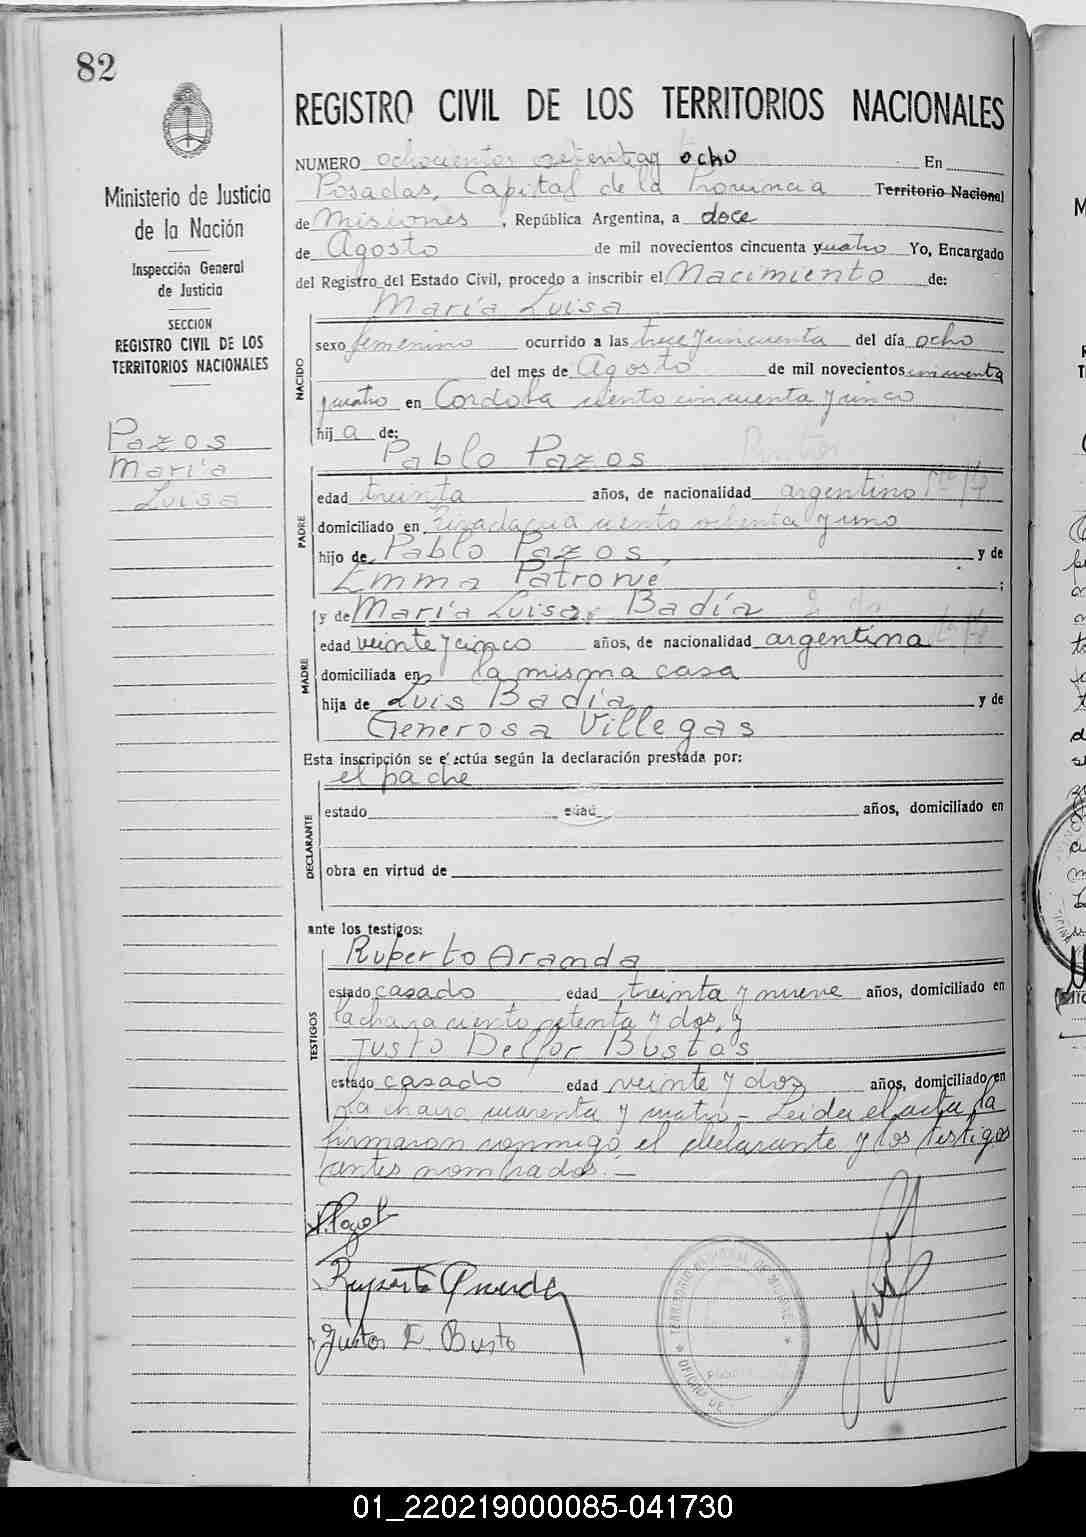 82
Ministerio de Justicia
de la Nación
Inspección General
de Justicia
SECCION
REGISTRO CIVIL DE LOS
TERRITORIOS NACIONALES
Pazos
María
Luisa
REGISTRO CIVIL DE LOS TERRITORIOS NACIONALES
NUMERO ochocientos setentay ocho En
Posadas, Capital de la Provincia Territorio Nacional
de Misiones, República Argentina, a doce
de Agosto de mil novecientos cincuenta y cuatro Yo, Encargado
del Registro del Estado Civil, procedo a inscribir el Nacimiento de:
María Luisa
NACIDO
sexo femenino ocurrido a las trece y cincuenta del día ocho
del mes de Agosto de mil novecientos cincuenta
y cuatro en Cordoba ciento cincuenta y cinco
hij a de:
Pablo Pazos
PADRE
edad treinta años, de nacionalidad argentino
domiciliado en Rivadavia ciento ochenta y uno
hijo de Pablo Pazos, y de
Emma Patroné ;
y de María Luisa Badía
MADRE
edad veinte y cinco años, de nacionalidad argentina
domiciliada en la misma casa
hija de Luis Badía y de
Generosa Villegas
Esta inscripción se efectúa según la declaración prestada por:
el padre
DECLARANTE
estado edad años, domiciliado en
obra en virtud de
ante los testigos:
Ruperto Aranda
TESTIGOS
estado casado edad treinta y nueve años, domiciliado en
la chacra ciento setenta y dos, y
Justo Delfor Bustos
estado casado edad veinte y dos años, domiciliado en
la chacra cuarenta y cuatro - Leida el acta, la
firmaron conmigo, el declarante y los testigos
antes nombrados.-
Ruperto Aranda
TERRITORIO NACIONAL DE MISIONES
OFICINA DE
01_220219000085-041730